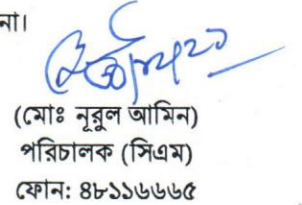 না।
(মোঃ নূরুল আমিন)
পরিচালক (সিএম)
ফোন: ৪৮১১৬৬৬৫